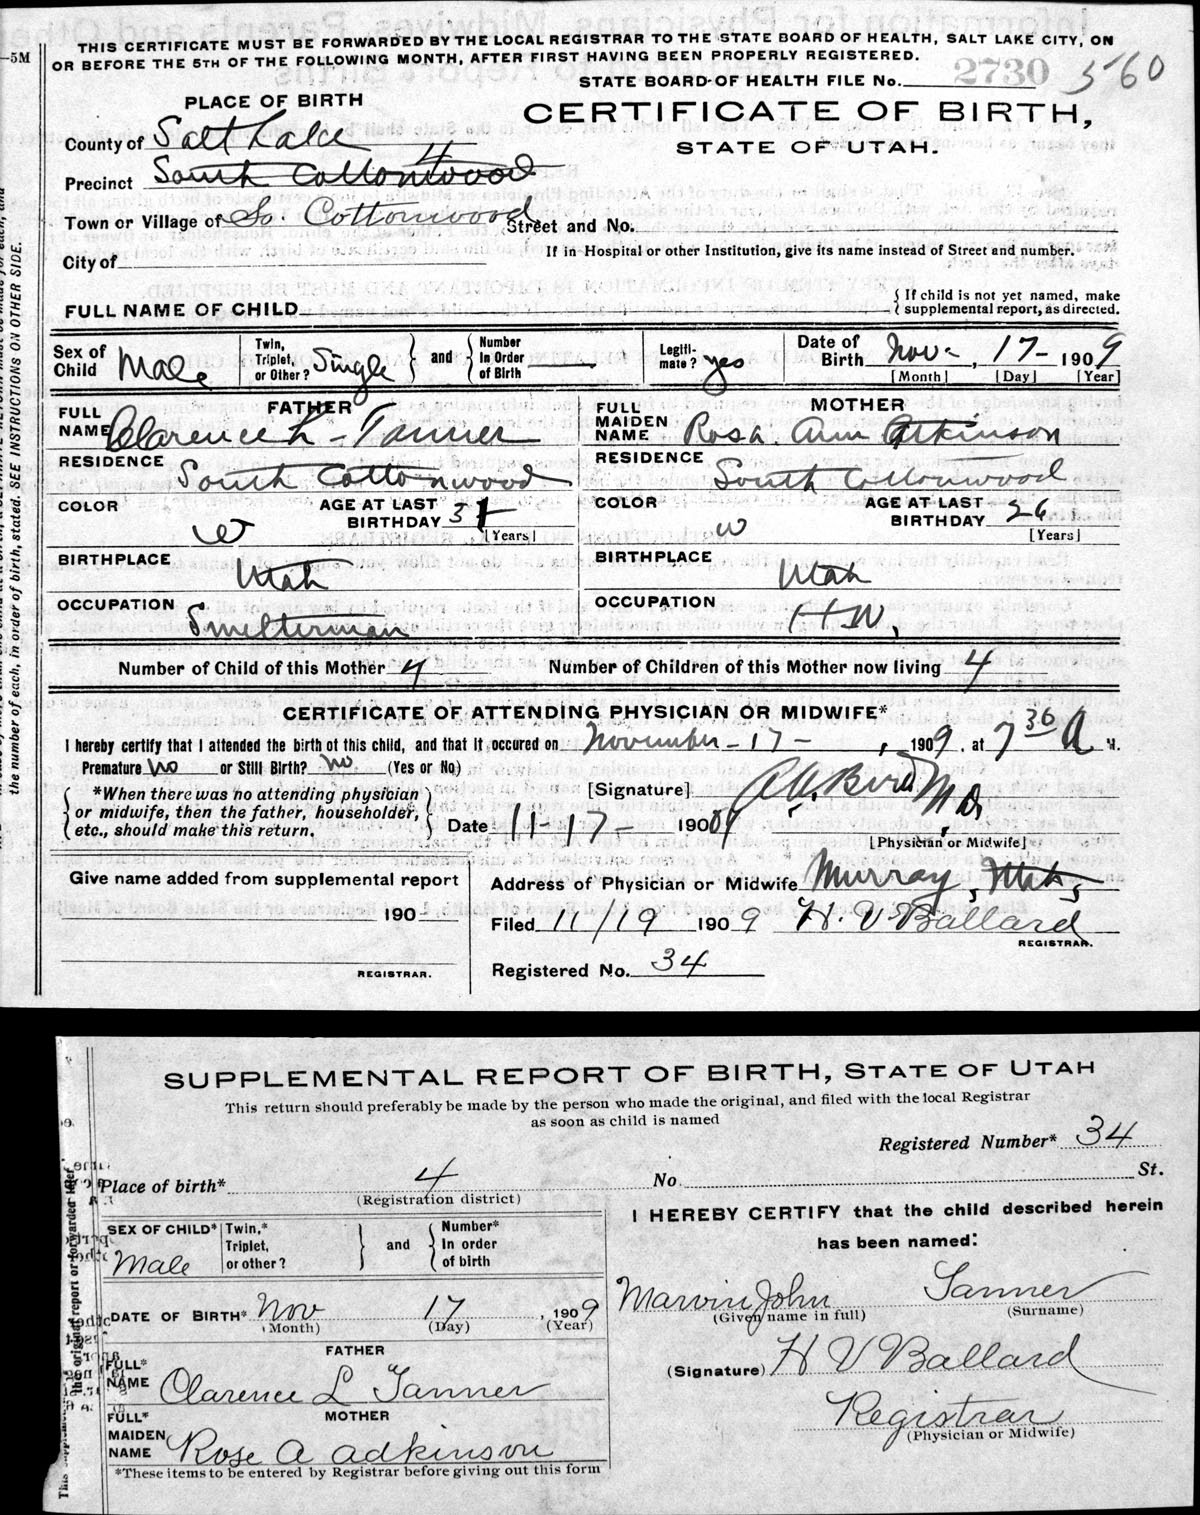 THIS CERTIFICATE MUST BE FORWARDED BY THE LOCAL REGISTRAR TO THE STATE BOARD OF HEALTH, SALT LAKE CITY, ON
OR BEFORE THE 5TH OF THE FOLLOWING MONTH, AFTER FIRST HAVING BEEN PROPERLY REGISTERED.
—5M
STATE BOARD OF HEALTH FILE No. 2730 560
PLACE OF BIRTH
CERTIFICATE OF BIRTH,
STATE OF UTAH.
County of Salt Lake
4
Precinct South Cottonwood
Town or Village of So. Cottonwood Street and No.
City of
If in Hospital or other Institution, give its name instead of Street and number.
FULL NAME OF CHILD { If child is not yet named, make
supplemental report, as directed.
Sex of Child Male
Twin, Triplet, or Other? Single } and { Number In Order of Birth
Legiti-mate? yes
Date of Birth Nov- , 17- 1909
[Month] [Day] [Year]
FATHER
FULL NAME Clarence L - Tanner
RESIDENCE South Cottonwood
COLOR W AGE AT LAST BIRTHDAY 31
[Years]
BIRTHPLACE Utah
OCCUPATION Smelterman
MOTHER
FULL MAIDEN NAME Rosa Ann Atkinson
RESIDENCE South Cottonwood
COLOR W AGE AT LAST BIRTHDAY 26
[Years]
BIRTHPLACE Utah
OCCUPATION H.W.
Number of Child of this Mother 4 Number of Children of this Mother now living 4
CERTIFICATE OF ATTENDING PHYSICIAN OR MIDWIFE*
I hereby certify that I attended the birth of this child, and that it occured on November - 17 - , 1909, at 7 30 A M.
Premature No or Still Birth? No (Yes or No)
*When there was no attending physician
or midwife, then the father, householder,
etc., should make this return.
[Signature] Bird M.D.
Date 11-17- 1909
[Physician or Midwife]
Give name added from supplemental report
190
REGISTRAR.
Address of Physician or Midwife Murray, Utah
Filed 11/19 1909 H. V. Ballard
REGISTRAR.
Registered No. 34
the number of each, in order of birth, stated. SEE INSTRUCTIONS ON OTHER SIDE.
SUPPLEMENTAL REPORT OF BIRTH, STATE OF UTAH
This return should preferably be made by the person who made the original, and filed with the local Registrar
as soon as child is named
Registered Number* 34
Place of birth* 4 No. St.
(Registration district)
SEX OF CHILD* Male
Twin,* Triplet, or other? } and { Number* In order of birth
DATE OF BIRTH* Nov 17 , 1909
(Month) (Day) (Year)
FATHER
FULL* NAME Clarence L Tanner
MOTHER
FULL* MAIDEN NAME Rose A Adkinson
*These items to be entered by Registrar before giving out this form
I HEREBY CERTIFY that the child described herein
has been named:
Marvin John Tanner
(Given name in full) (Surname)
(Signature) H V Ballard
Registrar
(Physician or Midwife)